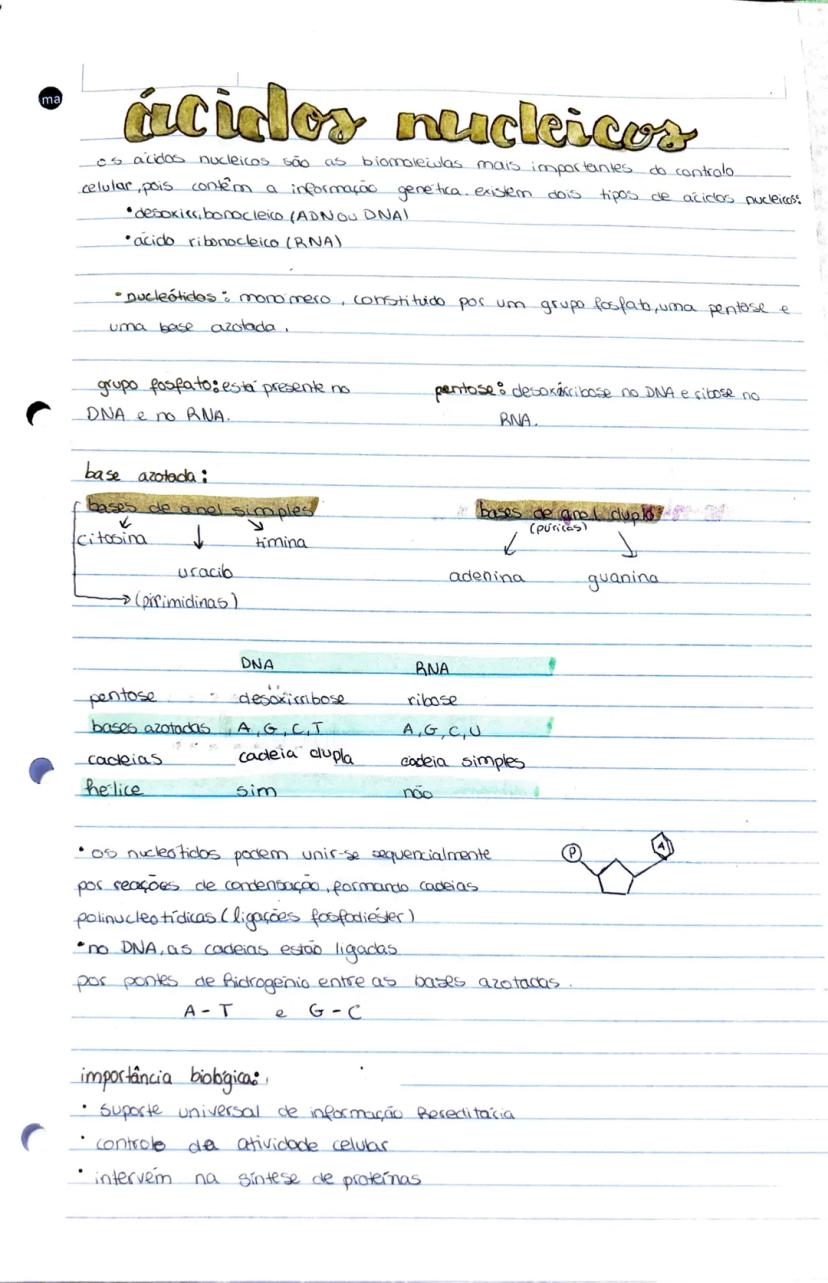 ma
ácidos nucleicos
os ácidos nucleicos são as biomoleculas mais importantes do controlo
celular, pois contêm a informação genética. existem dois tipos de ácidos nucleicos:
• desoxirribonocleico (ADN ou DNA)
• ácido ribonocleico (RNA)
• nucleótidos: monómero, constituido por um grupo fosfato, uma pentose e
uma base azotada.
grupo fosfato: está presente no
DNA e no RNA.
pentose: desoxirribose no DNA e ribose no
RNA.
base azotada:
bases de anel simples
citosina
timina
uracilo
(pirimidinas)
bases de anel duplo
(púricas)
adenina guanina
DNA RNA
pentose desoxirribose ribose
bases azotadas A, G, C, T A, G, C, U
cadeias cadeia dupla cadeia simples
hélice sim não
• os nucleótidos podem unir-se sequencialmente
por reações de condensação, formando cadeias
polinucleotídicas (ligações fosfodiéster)
P
A
• no DNA, as cadeias estão ligadas
por pontes de hidrogénio entre as bases azotadas.
A - T e G - C
importância biológica:
• suporte universal de informação hereditária
• controlo da atividade celular
• intervém na síntese de proteínas